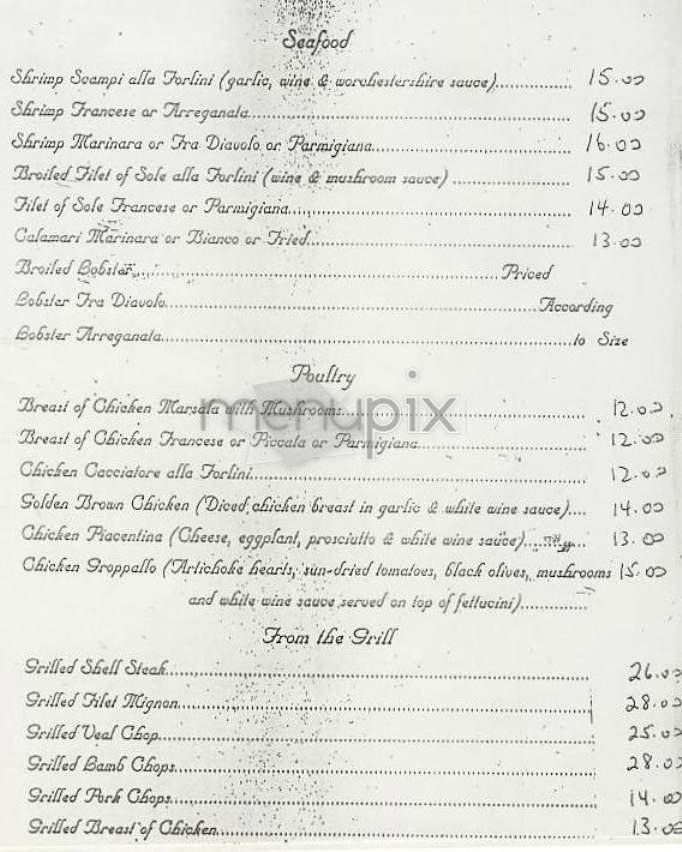 Seafood
Shrimp Scampi alla Forlini (garlic, wine & worchestershire sauce)................ 15.00
Shrimp Francese or Arreganata................ 15.00
Shrimp Marinara or Fra Diavolo or Parmigiana................ 16.00
Broiled Filet of Sole alla Forlini (wine & mushroom sauce) ................ 15.00
Filet of Sole Francese or Parmigiana................ 14.00
Calamari Marinara or Bianco or Fried................ 13.00
Broiled Lobster................Priced
Lobster Fra Diavolo................According
Lobster Arreganata................to Size
Poultry
Breast of Chicken Marsala with Mushrooms................ 12.00
menupix
Breast of Chicken Francese or Piccata or Parmigiana................ 12.00
Chicken Cacciatore alla Forlini................ 12.00
Golden Brown Chicken (Diced chicken breast in garlic & white wine sauce).... 14.00
Chicken Piacentina (Cheese, eggplant, prosciutto & white wine sauce)........ 13.00
Chicken Groppallo (Artichoke hearts, sun-dried tomatoes, black olives, mushrooms 15.00
and white wine sauce served on top of fettucini)................
From the Grill
Grilled Shell Steak................ 26.00
Grilled Filet Mignon................ 28.00
Grilled Veal Chop................ 25.00
Grilled Lamb Chops................ 28.00
Grilled Pork Chops................ 14.00
Grilled Breast of Chicken................ 13.00